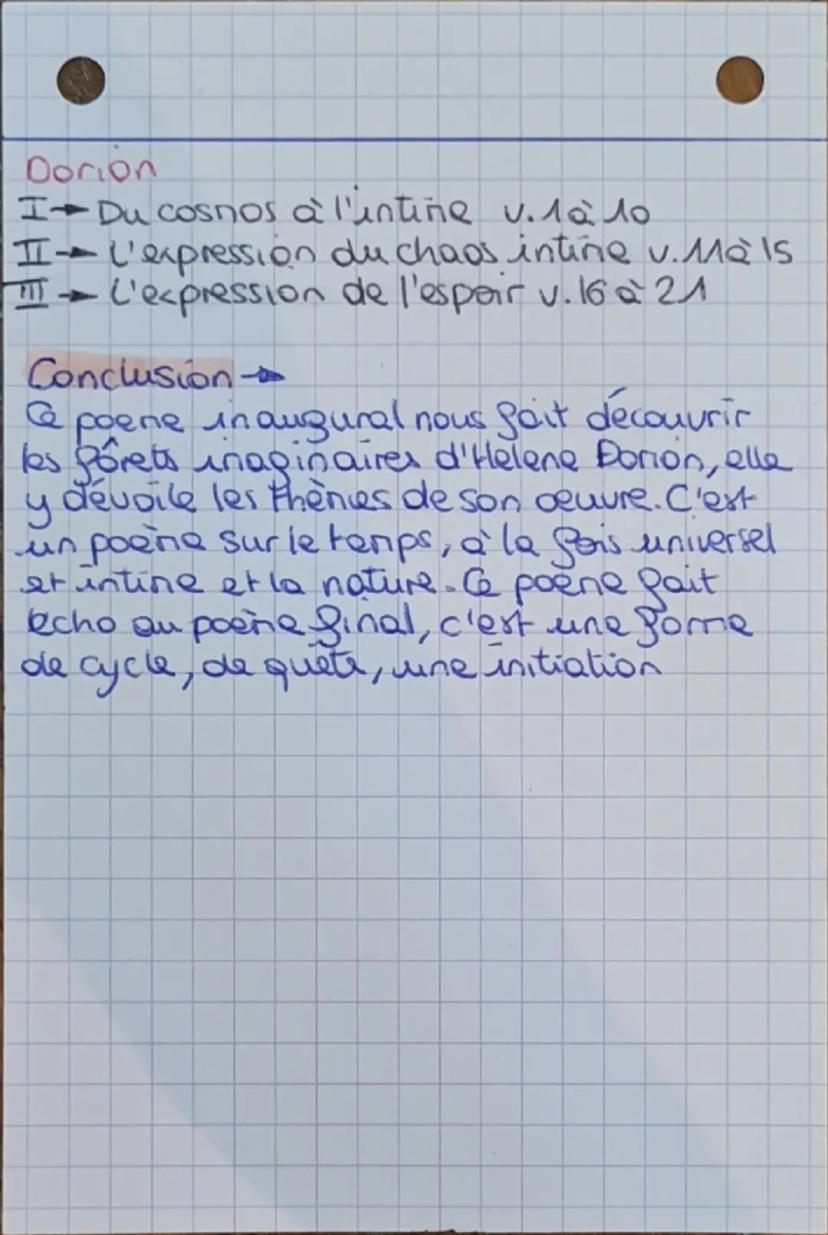 Dorion
I → Du cosmos à l'intime v.1 à 10
II → L'expression du chaos intime v.11 à 15
III → L'expression de l'espoir v.16 à 21
Conclusion →
Ce poeme inaugural nous fait découvrir
les fôrets imaginaires d'Helene Dorion, elle
y dévoile les thèmes de son œuvre. C'est
un poème sur le temps, à la fois universel
et intime et la nature. Ce poème fait
echo au poème final, c'est une forme
de cycle, de quête, une initiation